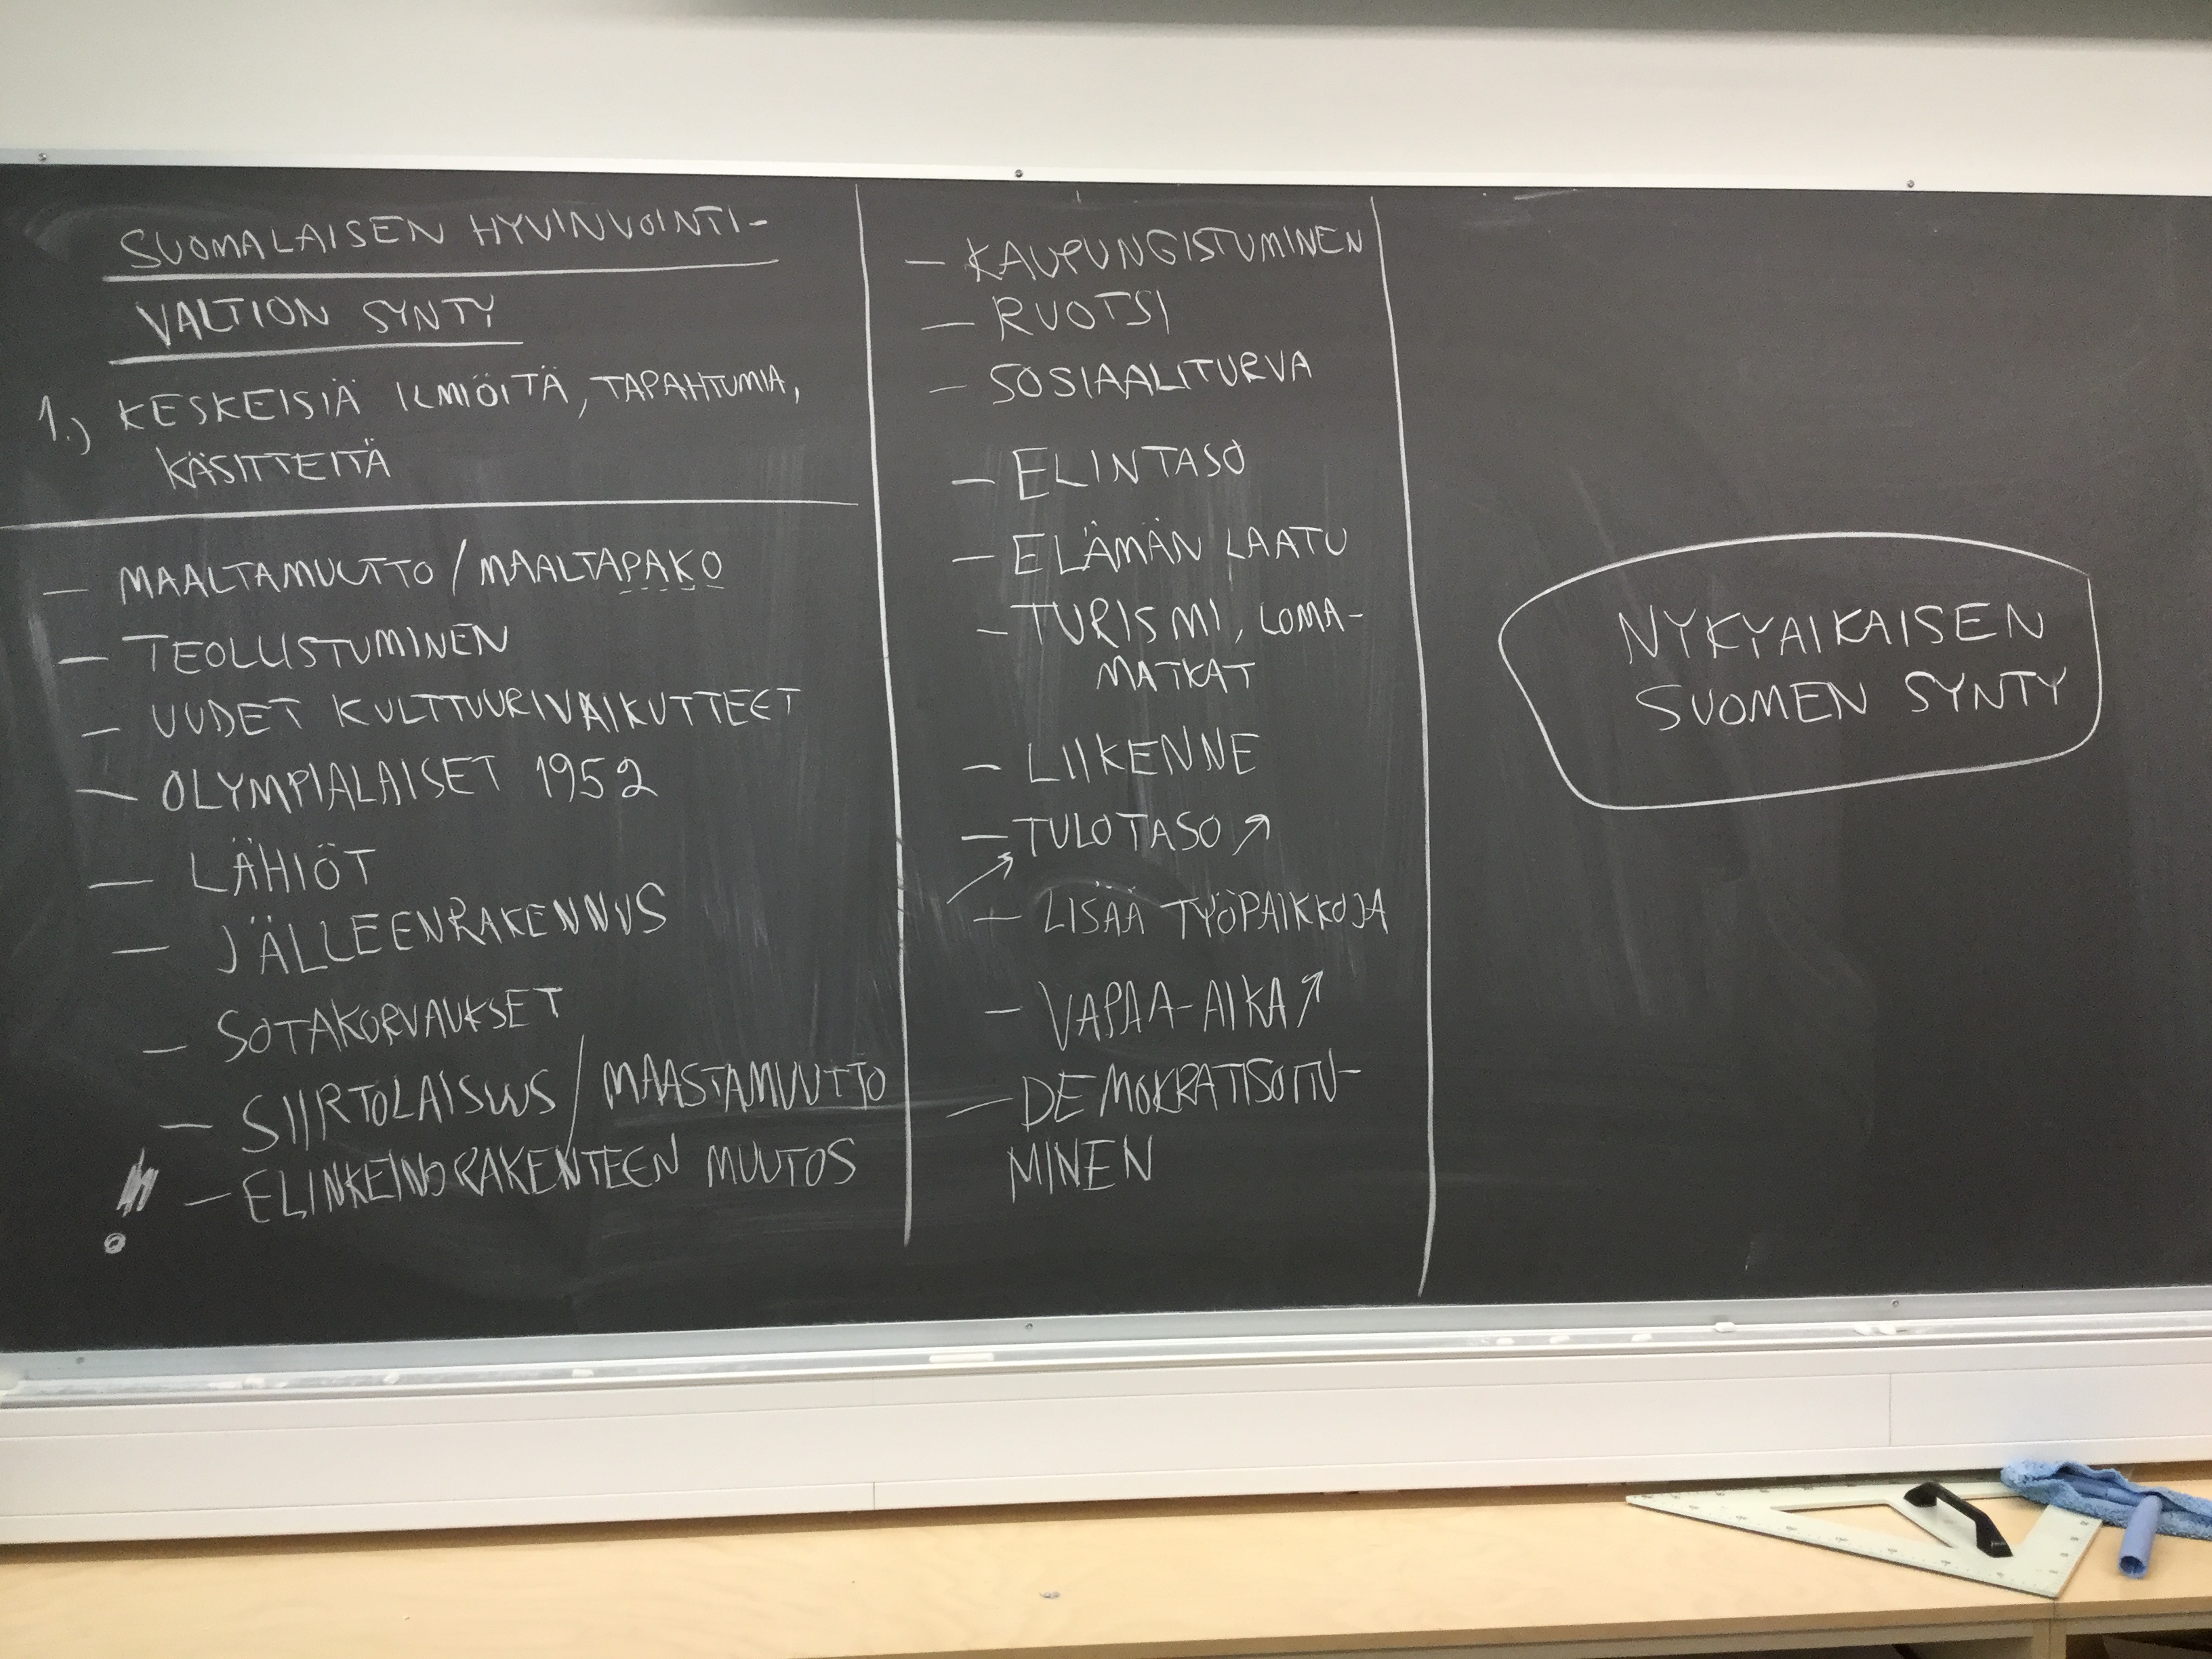 SUOMALAISEN HYVINVOINTI-
VALTION SYNTY
1.) KESKEISIÄ ILMIÖITÄ, TAPAHTUMIA,
KÄSITTEITÄ
— MAALTAMUUTTO / MAALTAPAKO
— TEOLLISTUMINEN
— UUDET KULTTUURIVAIKUTTEET
— OLYMPIALAISET 1952
— LÄHIÖT
— JÄLLEENRAKENNUS
— SOTAKORVAUKSET
— SIIRTOLAISUUS / MAASTAMUUTTO
! — ELINKEINORAKENTEEN MUUTOS
— KAUPUNGISTUMINEN
— RUOTSI
— SOSIAALITURVA
— ELINTASO
— ELÄMÄN LAATU
— TURISMI, LOMA-
MATKAT
— LIIKENNE
— TULOTASO ↗
— LISÄÄ TYÖPAIKKOJA
— VAPAA-AIKA ↗
— DEMOKRATISOITU-
MINEN
NYKYAIKAISEN
SUOMEN SYNTY